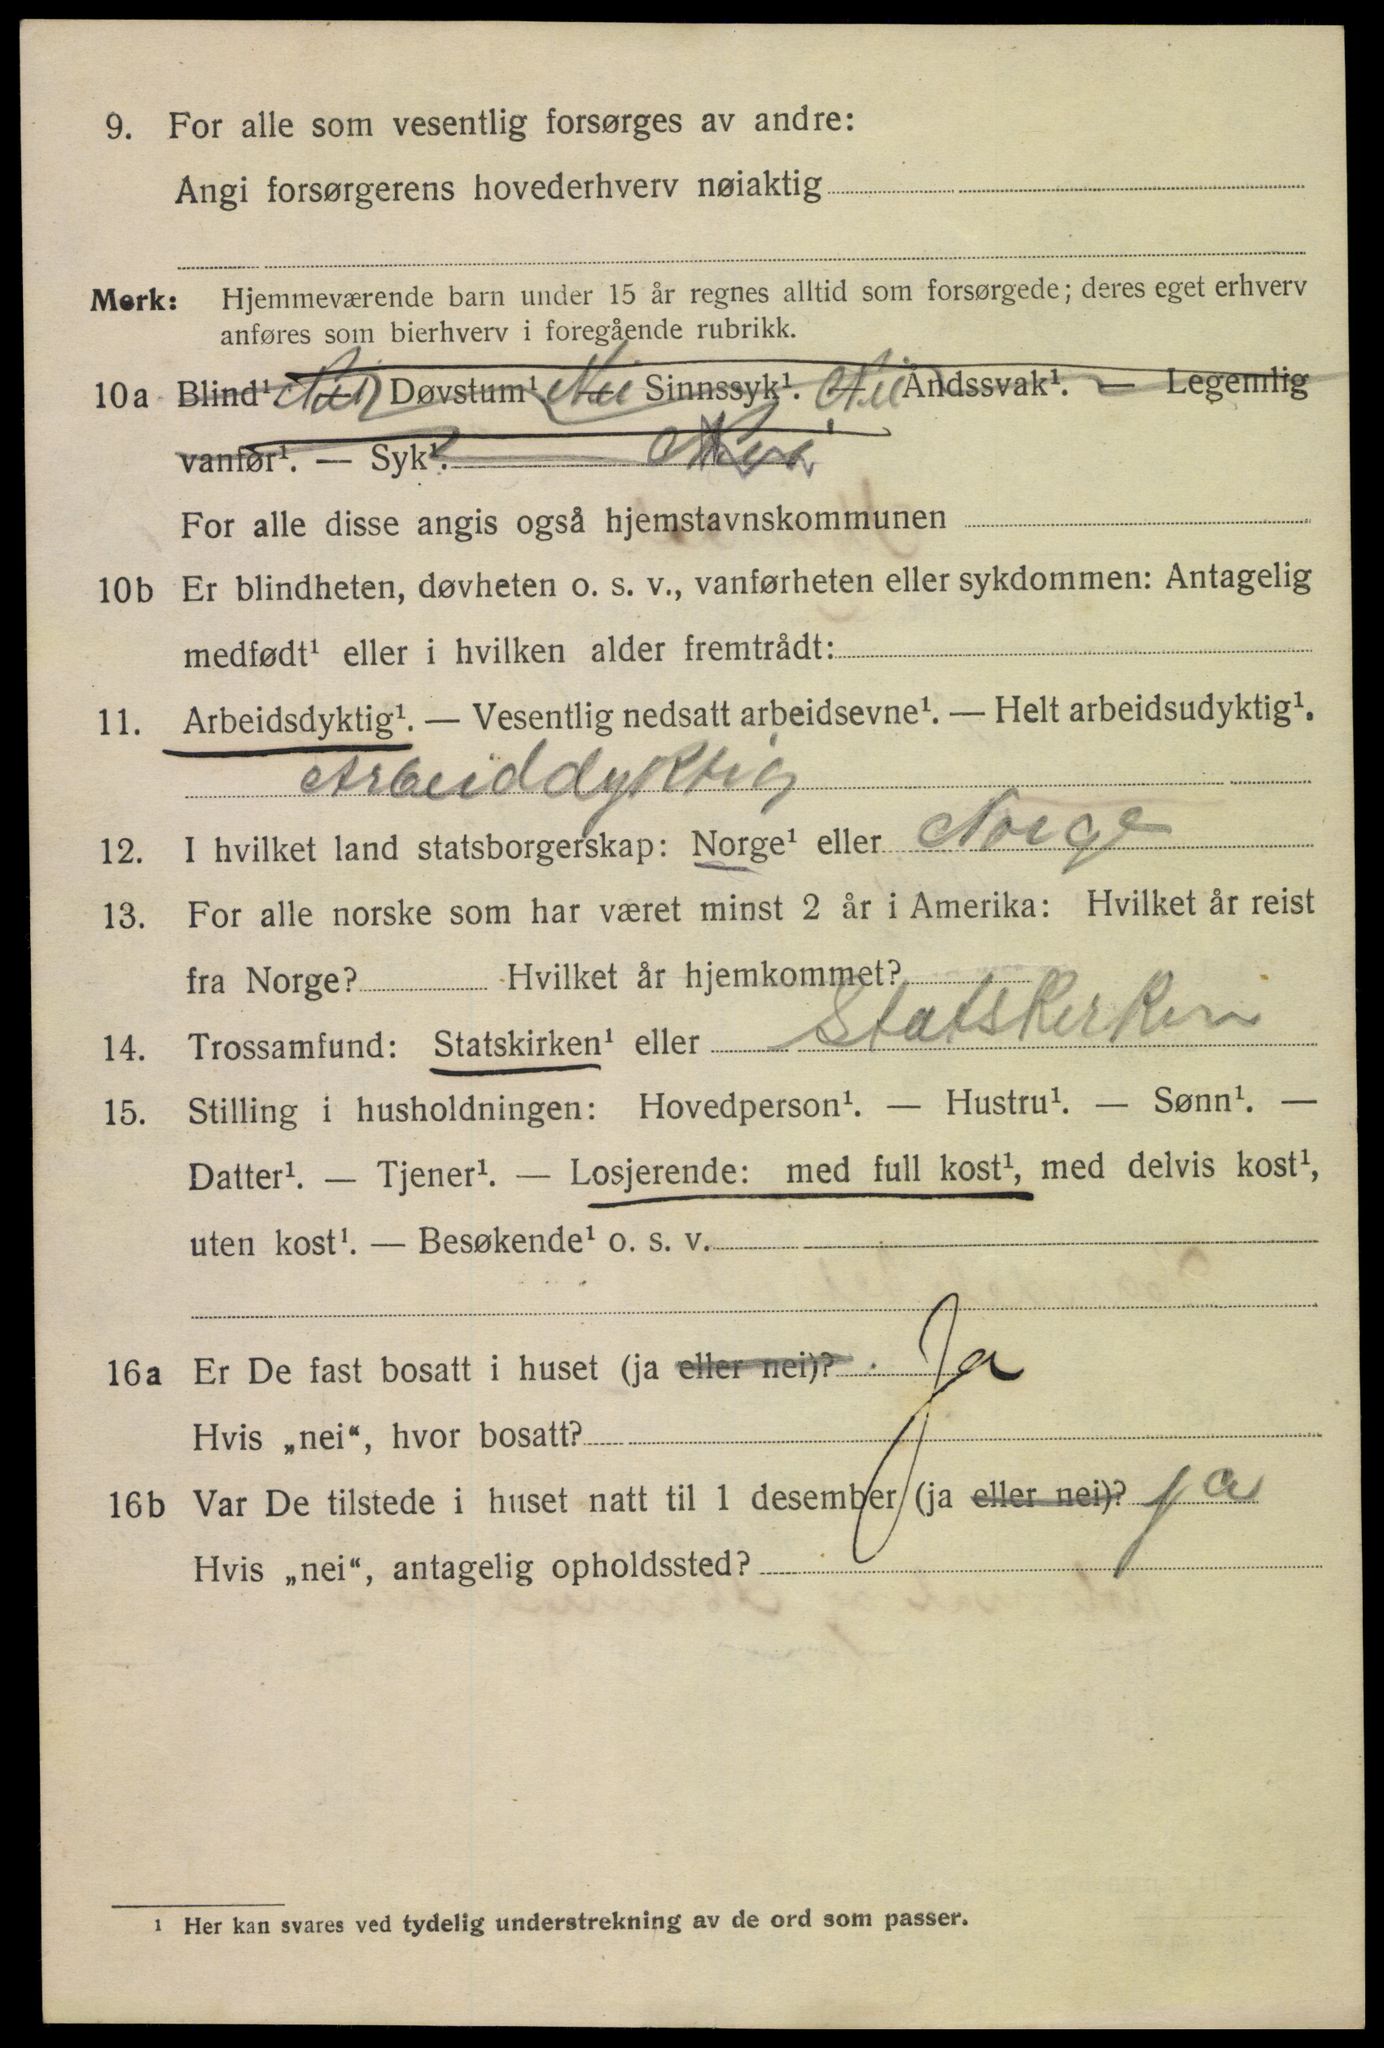 9. For alle som vesentlig forsørges av andre:
Angi forsørgerens hovederhverv nøiaktig
Merk: Hjemmeværende barn under 15 år regnes alltid som forsørgede; deres eget erhverv
anføres som bierhverv i foregående rubrikk.
10a Blind¹ Nei Døvstum¹ Nei Sinnssyk¹. Nei Åndssvak¹. — Legemlig
vanfør¹. — Syk¹. Nei
For alle disse angis også hjemstavnskommunen
10b Er blindheten, døvheten o. s. v., vanførheten eller sykdommen: Antagelig
medfødt¹ eller i hvilken alder fremtrådt:
11. Arbeidsdyktig¹. — Vesentlig nedsatt arbeidsevne¹. — Helt arbeidsudyktig¹.
Arbeiddyktig
12. I hvilket land statsborgerskap: Norge¹ eller Norge
13. For alle norske som har været minst 2 år i Amerika: Hvilket år reist
fra Norge? Hvilket år hjemkommet?
14. Trossamfund: Statskirken¹ eller Statskirken
15. Stilling i husholdningen: Hovedperson¹. — Hustru¹. — Sønn¹. —
Datter¹. — Tjener¹. — Losjerende: med full kost¹, med delvis kost¹,
uten kost¹. — Besøkende¹ o. s. v.
16a Er De fast bosatt i huset (ja eller nei)? Ja
Hvis „nei“, hvor bosatt?
16b Var De tilstede i huset natt til 1 desember (ja eller nei)? ja
Hvis „nei“, antagelig opholdssted?
¹ Her kan svares ved tydelig understrekning av de ord som passer.